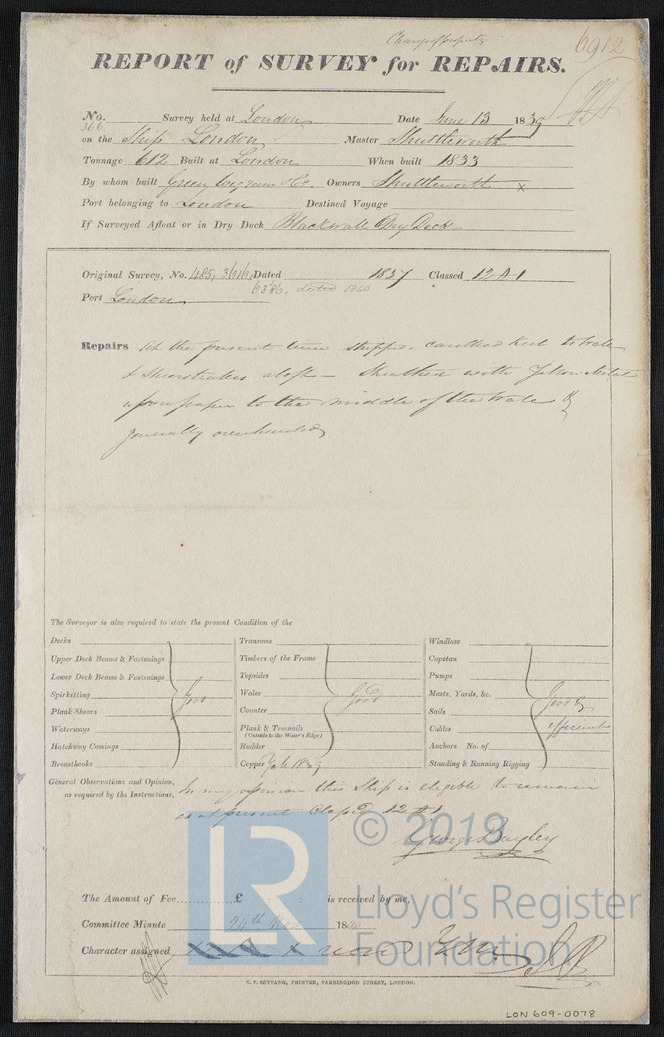 Change of property
6912
REPORT of SURVEY for REPAIRS.
No. 366 Survey held at London Date June 13 1839
on the Ship London Master Shuttleworth
Tonnage 612 Built at London When built 1833
By whom built Green Wigrams & Co. Owners Shuttleworth x
Port belonging to London Destined Voyage
If Surveyed Afloat or in Dry Dock Blackwall Dry Dock
Original Survey, No. 485, 3616, Dated 1837 Classed 12 A 1
6386. dated 1840
Port London
Repairs At the present time stripped, caulked Keel to Wale
& Sheerstrakes atop – Sheathed with Yellow Metal
upon paper to the middle of the Wale &
generally overhauled
The Surveyor is also required to state the present Condition of the
Decks
Upper Deck Beams & Fastenings
Lower Deck Beams & Fastenings
Spirketting
Plank-Shears
Waterways
Hatchway Comings
Breasthooks
Good
Transoms
Timbers of the Frame
Topsides
Wales
Counter
Plank & Treenails
(Outside to the Water's Edge)
Rudder
Copper 1839
Good
Windlass
Capstan
Pumps
Masts, Yards, &c.
Sails
Cables
Anchors No. of
Standing & Running Rigging
Good &
efficient
General Observations and Opinion,
as required by the Instructions,
In my opinion this Ship is eligible to remain
as at present Classed 12 A 1
George Bayley
The Amount of Fee £ : : is received by me,
Committee Minute 24th 1840
Character assigned
C. F. SEYFANG, PRINTER, FARRINGDON STREET, LONDON.
LON 609-0078
LR
© 2018
Lloyd's Register
Foundation